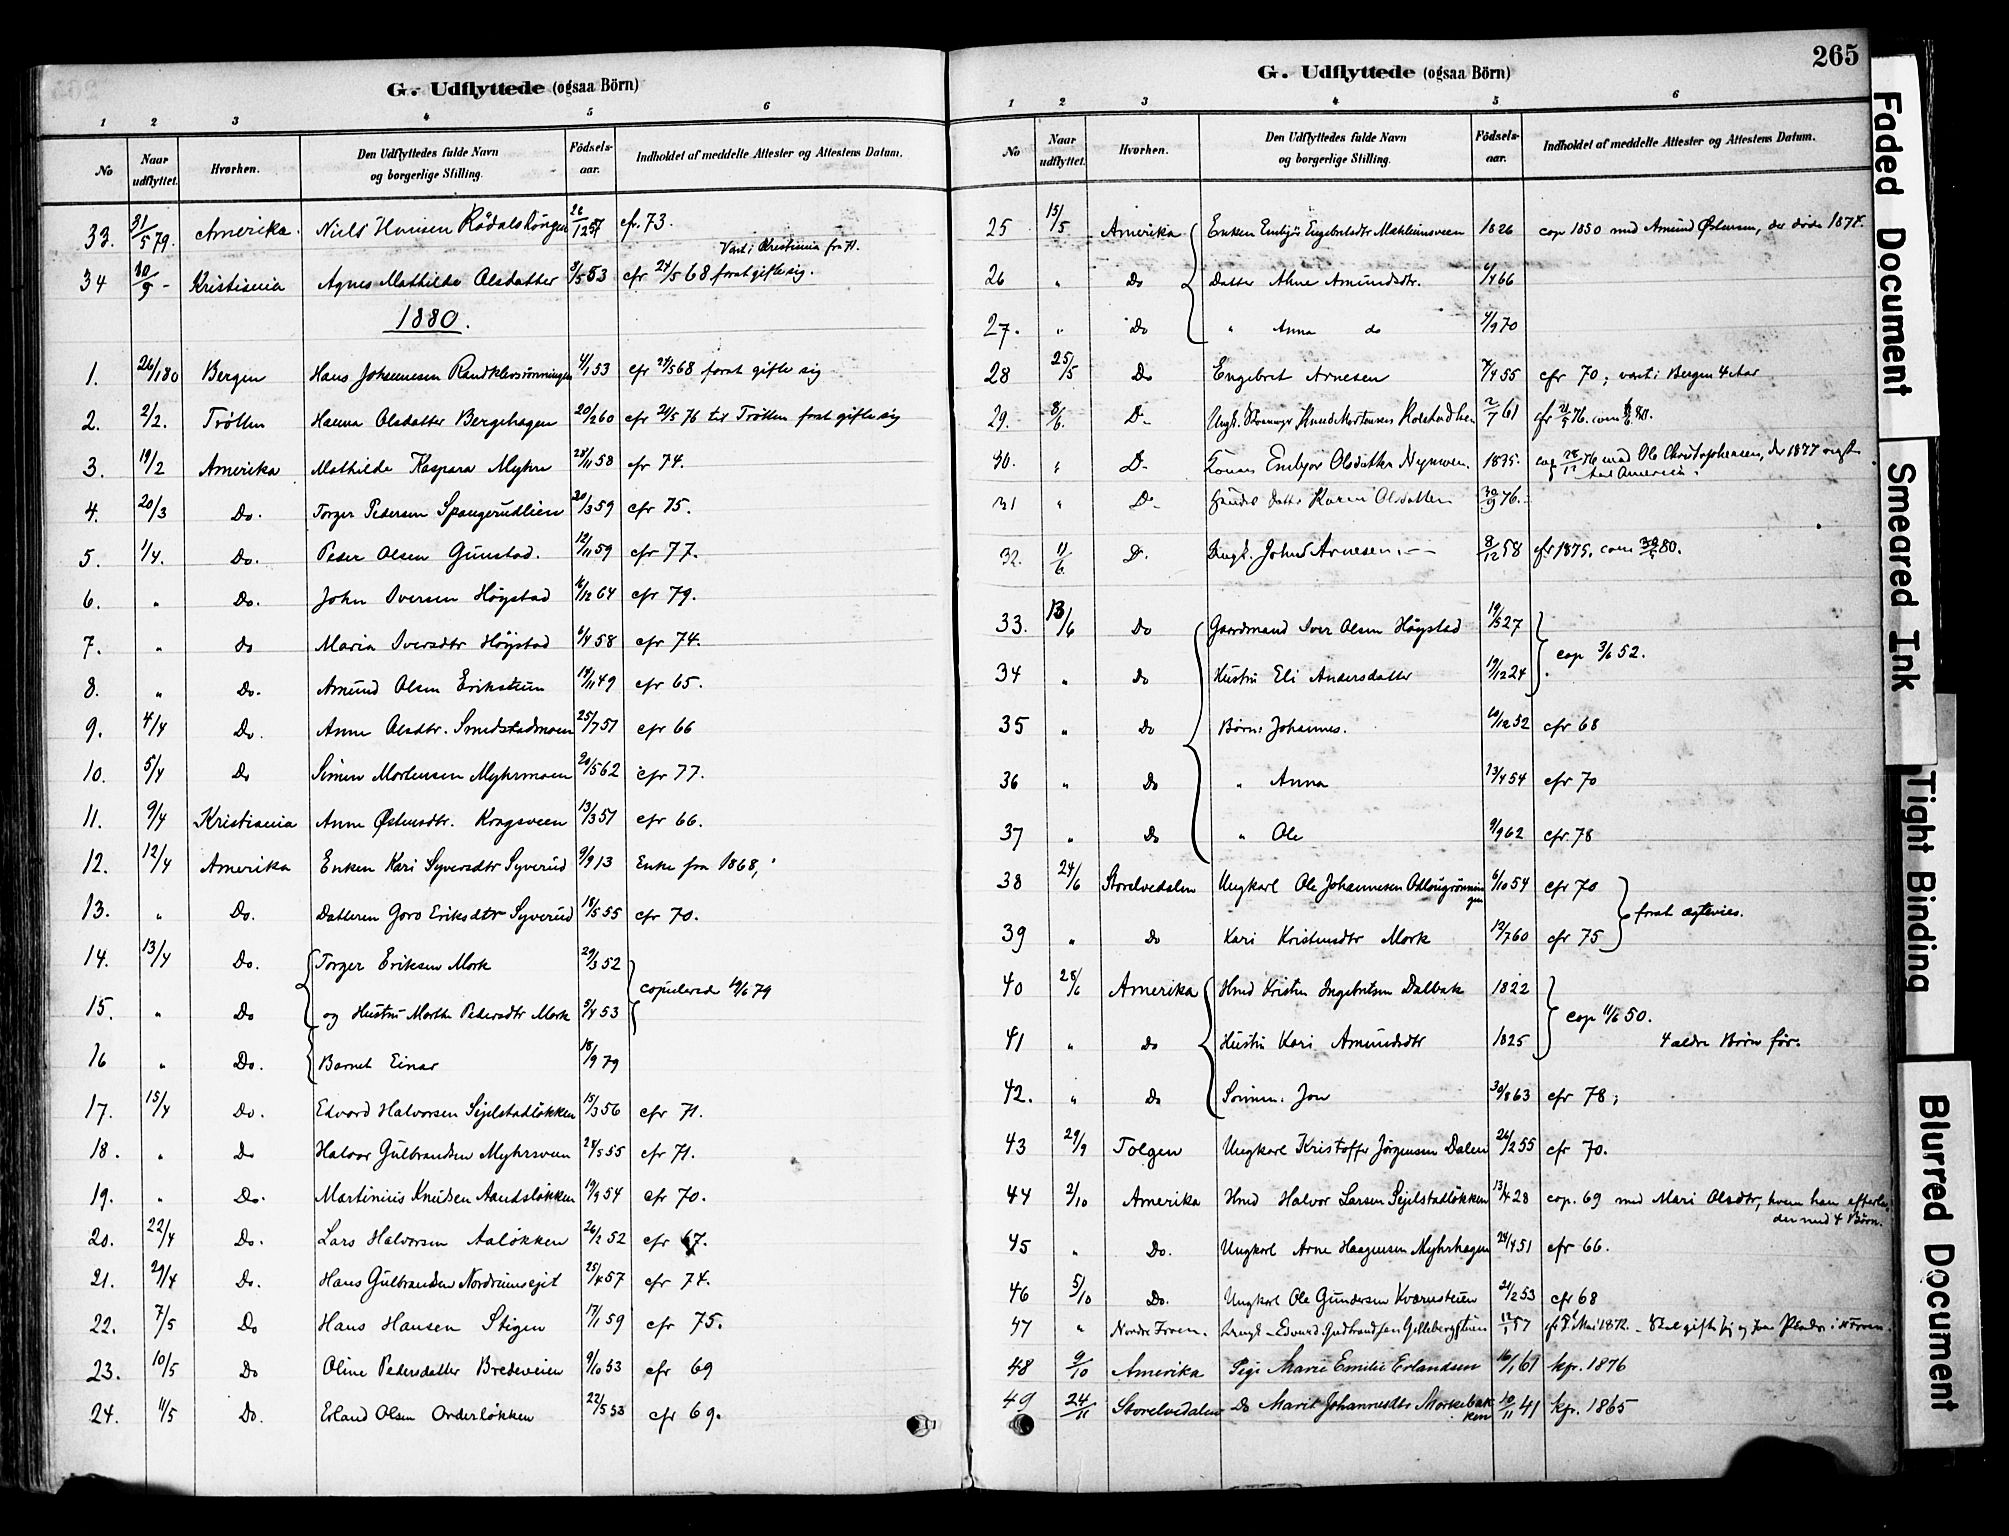 G. Udflyttede (ogsaa Börn)
1 2 3 4 5 6
No Naar udflyttet. Hvorhen. Den Udflyttedes fulde Navn og borgerlige Stilling. Födsels-aar. Indholdet af meddelte Attester og Attestens Datum.
33. 31/5 79. Amerika. Niels Hansen 26/12 57 cfr. 73.
Vært i Kristiania fra 71.
34 30/9 - Kristiania Agnes Mathilde Olsdatter 3/5 53 cfr 24/5 68 forat gifte sig.
1880.
1. 26/1 80 Bergen Hans Johannesen 4/1 53 cfr 24/5 68 forat gifte sig
2. 2/2. Tròtten Hanna Olsdatter Bergehagen 20/2 60 cfr 21/5 76 til Tròtten forat gifte sig
3. 19/2 Amerika Mathilde Kaspara Myhre 28/11 58 cfr 74.
4. 20/3 Do. Torger Pedersen Spangerudlien 30/3 59 cfr 75.
5. 1/4. Do. Peder Olsen Gunstad. 12/11 59 cfr 77.
6. " Do. John Iversen Höystad 16/12 64 cfr 79.
7. " do Maria Iversdtr Höystad 6/4 58 cfr 74.
8. " Do. Amund Olsen Eriksteen 19/11 49 cfr 65.
9. 4/4 Do. Anne Olsdtr. Smedstadmoen 25/7 51 cfr 66
10. 5/4 Do Simen Mortensen Myhrmoen 20/5 62 cfr 77.
11. 9/4 Kristiania Anne Østensdtr. Kragsveen 13/3 51 cfr 66.
12. 12/4 Amerika Enken Kari Syversdtr Syverud 9/9 13 Enke fra 1868,
13. " Do. Datteren Goro Eriksdtr Syverud 18/5 55 cfr 70.
14. 13/4 Do. Torger Eriksen Mork 29/3 52
copulered 19/6 79
15. " Do og Hustru Marthe Pedersdtr Mork 5/4 53
16 " Do. Barnet Einar 18/9 79
17. 15/4 Do. Edvard Halvorsen Sejelstadlökken 15/3 56 cfr 71.
18. " Do Halvor Gulbrandsen Myhrsveen 28/5 55 cfr 71.
19. " Do. Martinius Knudsen Aandslökken 19/9 54 cfr 70.
20. 22/4 Do. Lars Halvorsen Aalökken 26/2 52 cfr 67.
21. 29/4 Do. Hans Gulbrandsen Nordrumsejet 25/4 57 cfr 74.
22. 7/5 Do Hans Hansen Stigen 17/1 59 cfr 75.
23. 10/5 Do Oline Pedersdatter Bredeveien 9/10 53 cfr 69
24. 11/5 Do. Erland Olsen Onderlökken 22/5 53 cfr 69.
265
G. Udflyttede (ogsaa Börn)
1 2 3 4 5 6
No Naar udflyttet. Hvorhen. Den Udflyttedes fulde Navn og borgerlige Stilling. Födsels-aar. Indholdet af meddelte Attester og Attestens Datum.
25 15/5 Amerika Enken Embjör Engebretsdtr 1826 cop 1850 med Amund Østensen, der døde 1877.
26 " Do Datter Ahne Amundsdtr. 6/4 66
27. " Do " Anna do 4/9 70
28 25/5 Do Engebret Arnesen 7/4 55 cfr 70; vært i Bergen 4 Aar
29. 8/6. D- Ungk. Knud Mortensen 2/7 61 cfr 21/5 76. com 80.
30. " D- Konen Embjør Olsdatter Nymoen. 1835. cop 28/12 76 med Ole Christophersen, der 1877 reiste
til America.
31 " D- hendes datter Karen Olsdatter 30/9 76.
32. 11/6. D. Ungk. Johns Arnesen. 8/12 58 cfr 1875. com 30/5 80.
33. 13/6 Do Gaardmand Iver Olsen Höystad 19/5 27
cop 3/6 52.
34 " do Hustru Eli Andersdatter 19/12 24
35 " do Børn: Johannes. 10/12 52 cfr 68
36 " Do " Anna 13/4 54 cfr 70
37 " Do " Ole 9/9 62 cfr. 78
38 24/6 Storelvedalen Ungkarl Ole Johannesen 6/10 54 cfr 70
forat ægtevies.
39 " Do Kari Kristensdtr Mork 12/7 60 cfr 75
40 28/6 Amerika Hmd Kristen Ingebretsen Dalbak 1822
cop 11/6 50.
41 " Do Hustru Kari Amundsdtr 1825 4 ældre Børn før.
42. " Do Sønnen: Jon 30/8 63 cfr 78;
43 29/9 Tolgen Ungkarl Kristoffer Jörgensen Dalen 26/2 55 cfr 70.
44 2/10 Amerika Hmd Halvor Larsen Sejelstadlökken 13/4 28 cop. 69 med Mari Olsdtr, hvem han efterla-
der med 4 Børn.
45 " Do. Ungkarl Arne Haagensen Myhrhagen 24/4 51 cfr 66.
46 5/10 Do. Ungkarl Ole Gundersen Kværnsteien 21/2 53 cfr 68
47 " Nordre Froen. Ungk. Edvard Gudbrandsen 12/1 57 Mai 1872. - Skal gifte sig og faae Plads i N. Froen.
48 9/10 Amerika Pige Marie Emilie Erlandsen 16/1 61 kfr. 1876
49 24/11 Storelvedalen Do Marit Johannesdtr Morkebakken 10/11 41 kfr. 1865
Faded Document
Smeared Ink
Tight Binding
Blurred Document